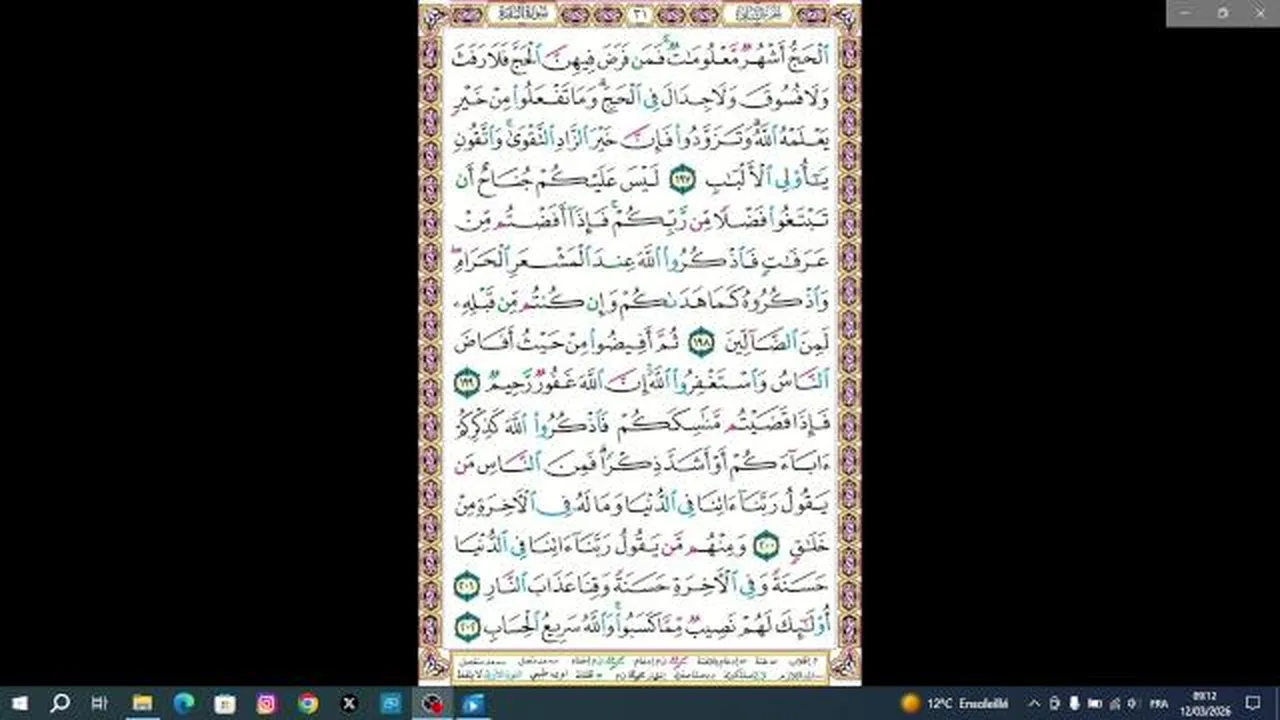 سورة البقرة ٣١ الجزء الثاني
ٱلۡحَجُّ أَشۡهُرٞ مَّعۡلُومَٰتٞۚ فَمَن فَرَضَ فِيهِنَّ ٱلۡحَجَّ فَلَا رَفَثَ
وَلَا فُسُوقَ وَلَا جِدَالَ فِي ٱلۡحَجِّۗ وَمَا تَفۡعَلُواْ مِنۡ خَيۡرٖ
يَعۡلَمۡهُ ٱللَّهُۗ وَتَزَوَّدُواْ فَإِنَّ خَيۡرَ ٱلزَّادِ ٱلتَّقۡوَىٰۖ وَٱتَّقُونِ
يَٰٓأُوْلِي ٱلۡأَلۡبَٰبِ ١٩٧ لَيۡسَ عَلَيۡكُمۡ جُنَاحٌ أَن
تَبۡتَغُواْ فَضۡلٗا مِّن رَّبِّكُمۡۚ فَإِذَآ أَفَضۡتُم مِّنۡ
عَرَفَٰتٖ فَٱذۡكُرُواْ ٱللَّهَ عِندَ ٱلۡمَشۡعَرِ ٱلۡحَرَامِۖ
وَٱذۡكُرُوهُ كَمَا هَدَىٰكُمۡ وَإِن كُنتُم مِّن قَبۡلِهِۦ
لَمِنَ ٱلضَّآلِّينَ ١٩٨ ثُمَّ أَفِيضُواْ مِنۡ حَيۡثُ أَفَاضَ
ٱلنَّاسُ وَٱسۡتَغۡفِرُواْ ٱللَّهَۚ إِنَّ ٱللَّهَ غَفُورٞ رَّحِيمٞ ١٩٩
فَإِذَا قَضَيۡتُم مَّنَٰسِكَكُمۡ فَٱذۡكُرُواْ ٱللَّهَ كَذِكۡرِكُمۡ
ءَابَآءَكُمۡ أَوۡ أَشَدَّ ذِكۡرٗاۗ فَمِنَ ٱلنَّاسِ مَن
يَقُولُ رَبَّنَآ ءَاتِنَا فِي ٱلدُّنۡيَا وَمَا لَهُۥ فِي ٱلۡأٓخِرَةِ مِنۡ
خَلَٰقٖ ٢٠٠ وَمِنۡهُم مَّن يَقُولُ رَبَّنَآ ءَاتِنَا فِي ٱلدُّنۡيَا
حَسَنَةٗ وَفِي ٱلۡأٓخِرَةِ حَسَنَةٗ وَقِنَا عَذَابَ ٱلنَّارِ ٢٠١
أُوْلَٰٓئِكَ لَهُمۡ نَصِيبٞ مِّمَّا كَسَبُواْۚ وَٱللَّهُ سَرِيعُ ٱلۡحِسَابِ ٢٠٢
12°C Ensoleillé FRA 09:12
12/03/2026